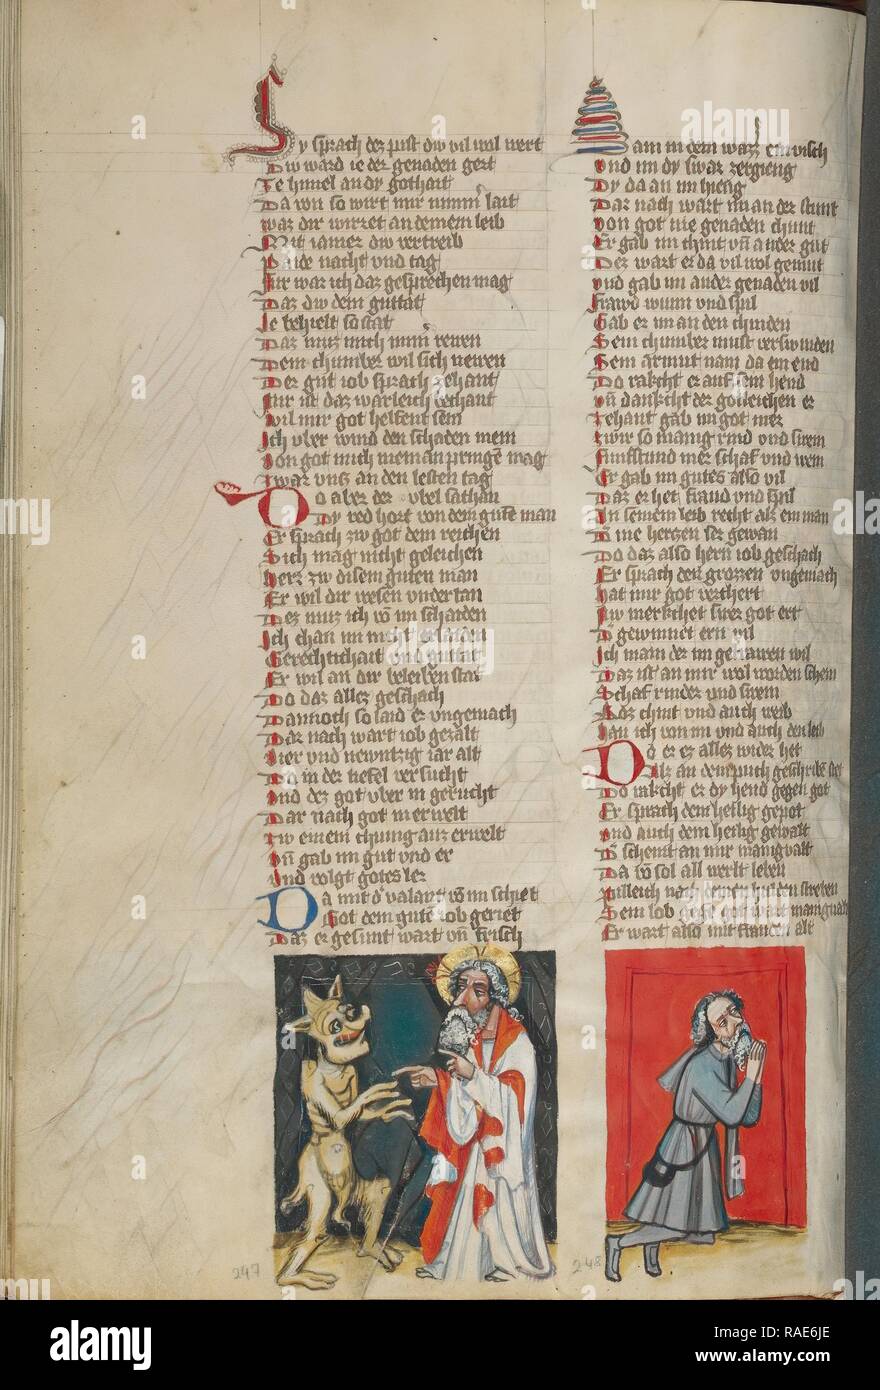 Sy sprach der prist div vil wol wert
Div ward ie der genaden gert
Ze himel an dy gothait
Da von so wirt mir nimmer lait
waz dir wirret an deinem leib
Mit iamer div vertreib
Paide nacht vnd tag
Fur war ich daz gesprechen mag
Daz div dem guttat
Ie behielt so stat
Daz muz mich nimmer rewen
Dein chumber wil sich newen
Der gut iob sprach zehant
Fur ist daz warleich bechant
wil mir got helfent sein
Ich vber wind den schaden mein
von got mich nieman pringen mag
vnz an den lesten tag
Do aber der vbel sathan
Dy red hort von dem guten man
Er sprach zw got dem reichen
Sich mag nicht geleichen
herz zw disem guten man
Er wil dir wesen vndertan
Dez muz ich von im schaiden
Ich chan im nicht gelaiden
Gerechtichait vnd guttat
Er wil an dir beleiben stat
Do daz allez geschach
Dannoch so laid er vngemach
Dar nach wart iob gezalt
vier vnd newntzig iar alt
Da in der tiefel versucht
vnd dez got vber in gerucht
Dar nach got in erwelt
zw einem chunig auz erwelt
vnd gab im gut vnd er
vnd volgt gotes ler
Da mit der valant von im schiet
Got dem guten iob geriet
Daz er gesunt wart vnd frisch
Sam in dem wazzer ein visch
vnd im dy swar zergieng
Dy da an im hieng
Dar nach wart im an der stunt
von got nie genaden chunt
Er gab im chint vnd ander gut
Der wart er da vil wol gemut
vnd gab im ander genaden vil
Frawd wunn vnd spil
Gab er im an den chinden
Sein chumber must verswinden
Sein armut nam da ein end
Do rakcht er auf sein hend
vnd dankcht der gotleichen er
Zehant gab im got mer
zwir so manig rind vnd swein
Funfstund mer schaf vnd wein
Er gab im gutes also vil
Daz er het fraud vnd spil
In seinem leib recht alz ein man
Do daz also hern iob geschach
Er sprach den grozzen vngemach
hat mir got verchert
Nw merkchet swer got ert
Der gewinnet ern vil
Ich main der im getrawen wil
Daz ist an mir wol worden schein
Schaf rinder vnd swein
Vnd chint vnd auch weib
han ich von im vnd auch den leib
Do er ez allez wider het
Alz an dem puch geschriben stet
Do rakcht er dy hend gegen got
Er sprach dem heilig gepot
vnd auch dem heilig gewalt
Der scheint an mir manigualt
Da von sol all werlt leben
Pilleich nach seinen hulden streben
Sein lob
Er wart also mit frauden alt
247
248
alamy
a
alamy stock photo
Image ID: RAE6JE
www.alamy.com